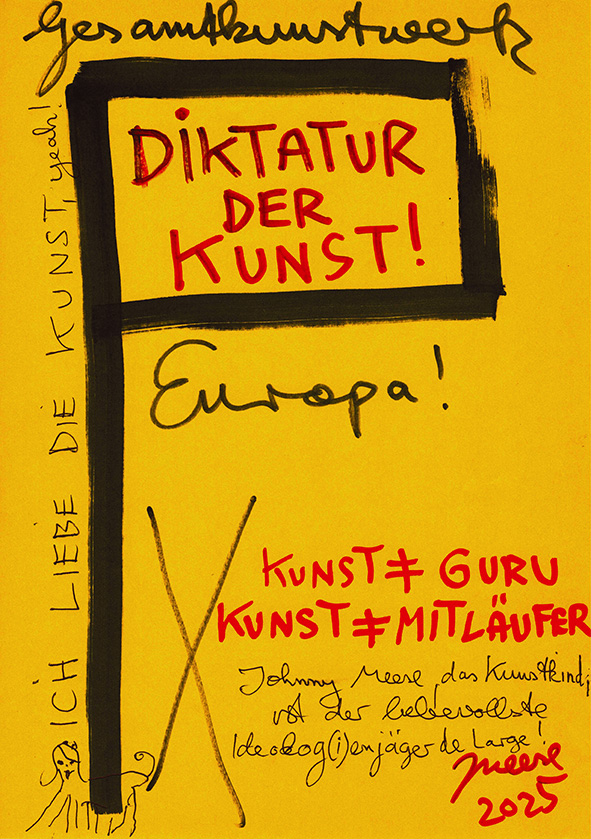 Gesamtkunstwerk
DiKTATUR
DER
KUNST!
Europa!
ICH LIEBE DIE KUNST, yeah!
KUNST ≠ GURU
KUNST ≠ MITLÄUFER
Johnny Meese, das Kunstkind,
ist der liebevollste
Ideolog(i)enjäger de Large!
Meese
2025